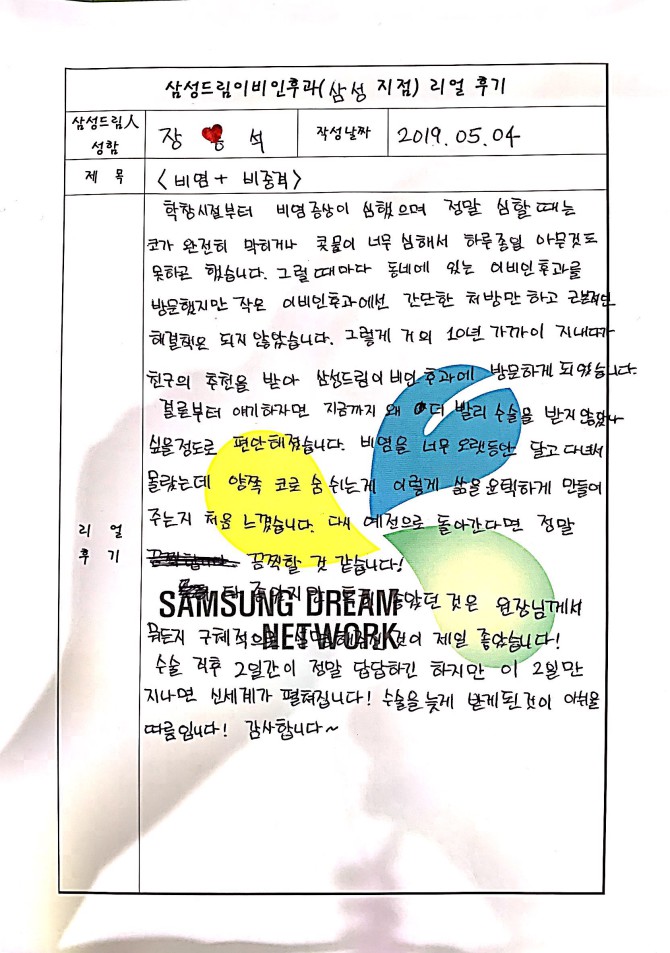 삼성드림이비인후과(삼성 지점) 리얼 후기
삼성드림人 성함
장 석
작성날짜
2019.05.04
제 목
<비염 + 비중격>
리 얼 후 기
학창시절부터 비염증상이 심했으며 정말 심할 때는
코가 완전히 막히거나 콧물이 너무 심해서 하루종일 아무것도
못하곤 했습니다. 그럴 때마다 동네에 있는 이비인후과를
방문했지만 작은 이비인후과에선 간단한 처방만 하고 근본적인
해결책은 되지 않았습니다. 그렇게 거의 10년 가까이 지내다가
친구의 추천을 받아 삼성드림이비인후과에 방문하게 되었습니다.
결론부터 얘기하자면 지금까지 왜 더 빨리 수술을 받지 않았나
싶을정도로 편안해졌습니다. 비염을 너무 오랫동안 달고 다녀서
몰랐는데 양쪽 코로 숨 쉬는게 이렇게 삶을 윤택하게 만들어
주는지 처음 느꼈습니다. 다시 예전으로 돌아간다면 정말
끔찍할 것 같습니다!
다 좋았지만 좋았던 것은 원장님께서
뭐든지 구체적으로 것이 제일 좋았습니다!
수술 직후 2일간이 정말 답답하긴 하지만 이 2일만
지나면 신세계가 펼쳐집니다! 수술을 늦게 받게된 것이 아쉬울
따름입니다! 감사합니다~
SAMSUNG DREAM
NETWORK